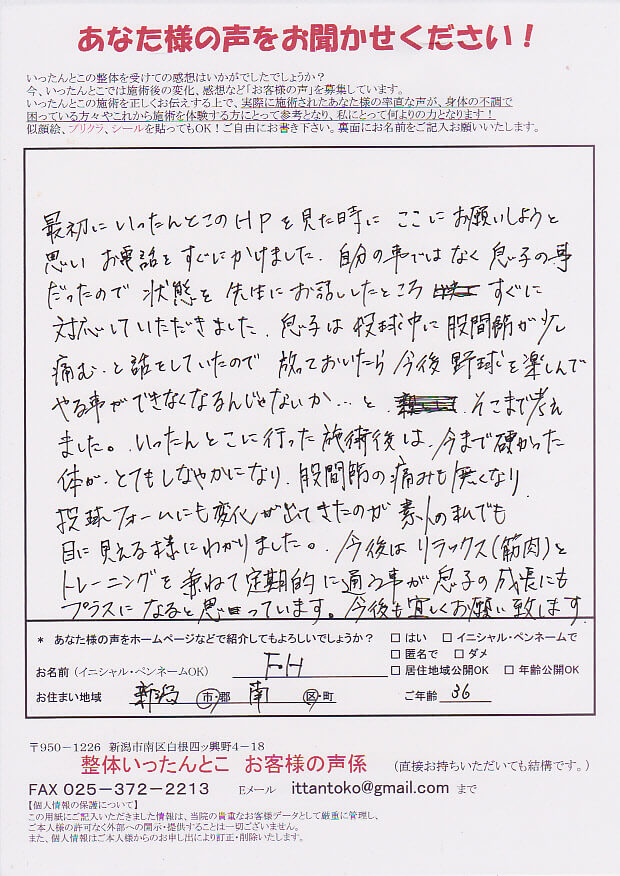 あなた様の声をお聞かせください！
いったんとこの整体を受けての感想はいかがでしたでしょうか？
今、いったんとこでは施術後の変化、感想など「お客様の声」を募集しています。
いったんとこの施術を正しくお伝えする上で、実際に施術されたあなた様の率直な声が、身体の不調で
困っている方々やこれから施術を体験する方にとって参考となり、私にとって何よりの力となります！
似顔絵、プリクラ、シールを貼ってもOK！ご自由にお書き下さい。裏面にお名前をご記入お願いいたします。
最初にいったんとこのHPを見た時に ここにお願いしようと
思い お電話をすぐにかけました。自分の事ではなく息子の事
だったので 状態を 先生にお話ししたところ すぐに
対応していただきました。息子は投球中に股間節が少し
痛む。と話をしていたので 放っておいたら今後野球を楽しんで
やる事ができなくなるんじゃないか…と そこまで考え
ました。いったんとこに行った施術後は、今まで硬かった
体が、とてもしなやかになり、股間節の痛みも無くなり
投球フォームにも変化が出てきたのが素人の私でも
目に見える様にわかりました。今後はリラックス(筋肉)と
トレーニングを兼ねて定期的に通う事が息子の成長にも
プラスになると思っています。今後も宜しくお願い致します
* あなた様の声をホームページなどで紹介してもよろしいでしょうか？ □ はい □ イニシャル・ペンネームで
□ 匿名で □ ダメ
お名前（イニシャル・ペンネームOK） F・H □ 居住地域公開OK □ 年齢公開OK
お住まい地域 新潟 市・郡 南 区・町 ご年齢 36
〒950－1226 新潟市南区白根四ッ興野4－18
整体いったんとこ お客様の声係 （直接お持ちいただいても結構です。）
FAX 025－372－2213 Eメール ittantoko@gmail.com まで
【個人情報の保護について】
この用紙にご記入いただきました情報は、当院の貴重なお客様データとして厳重に管理し、
ご本人様の許可なく外部への開示・提供することは一切ございません。
また、個人情報はご本人様からのお申し出により訂正・削除いたします。